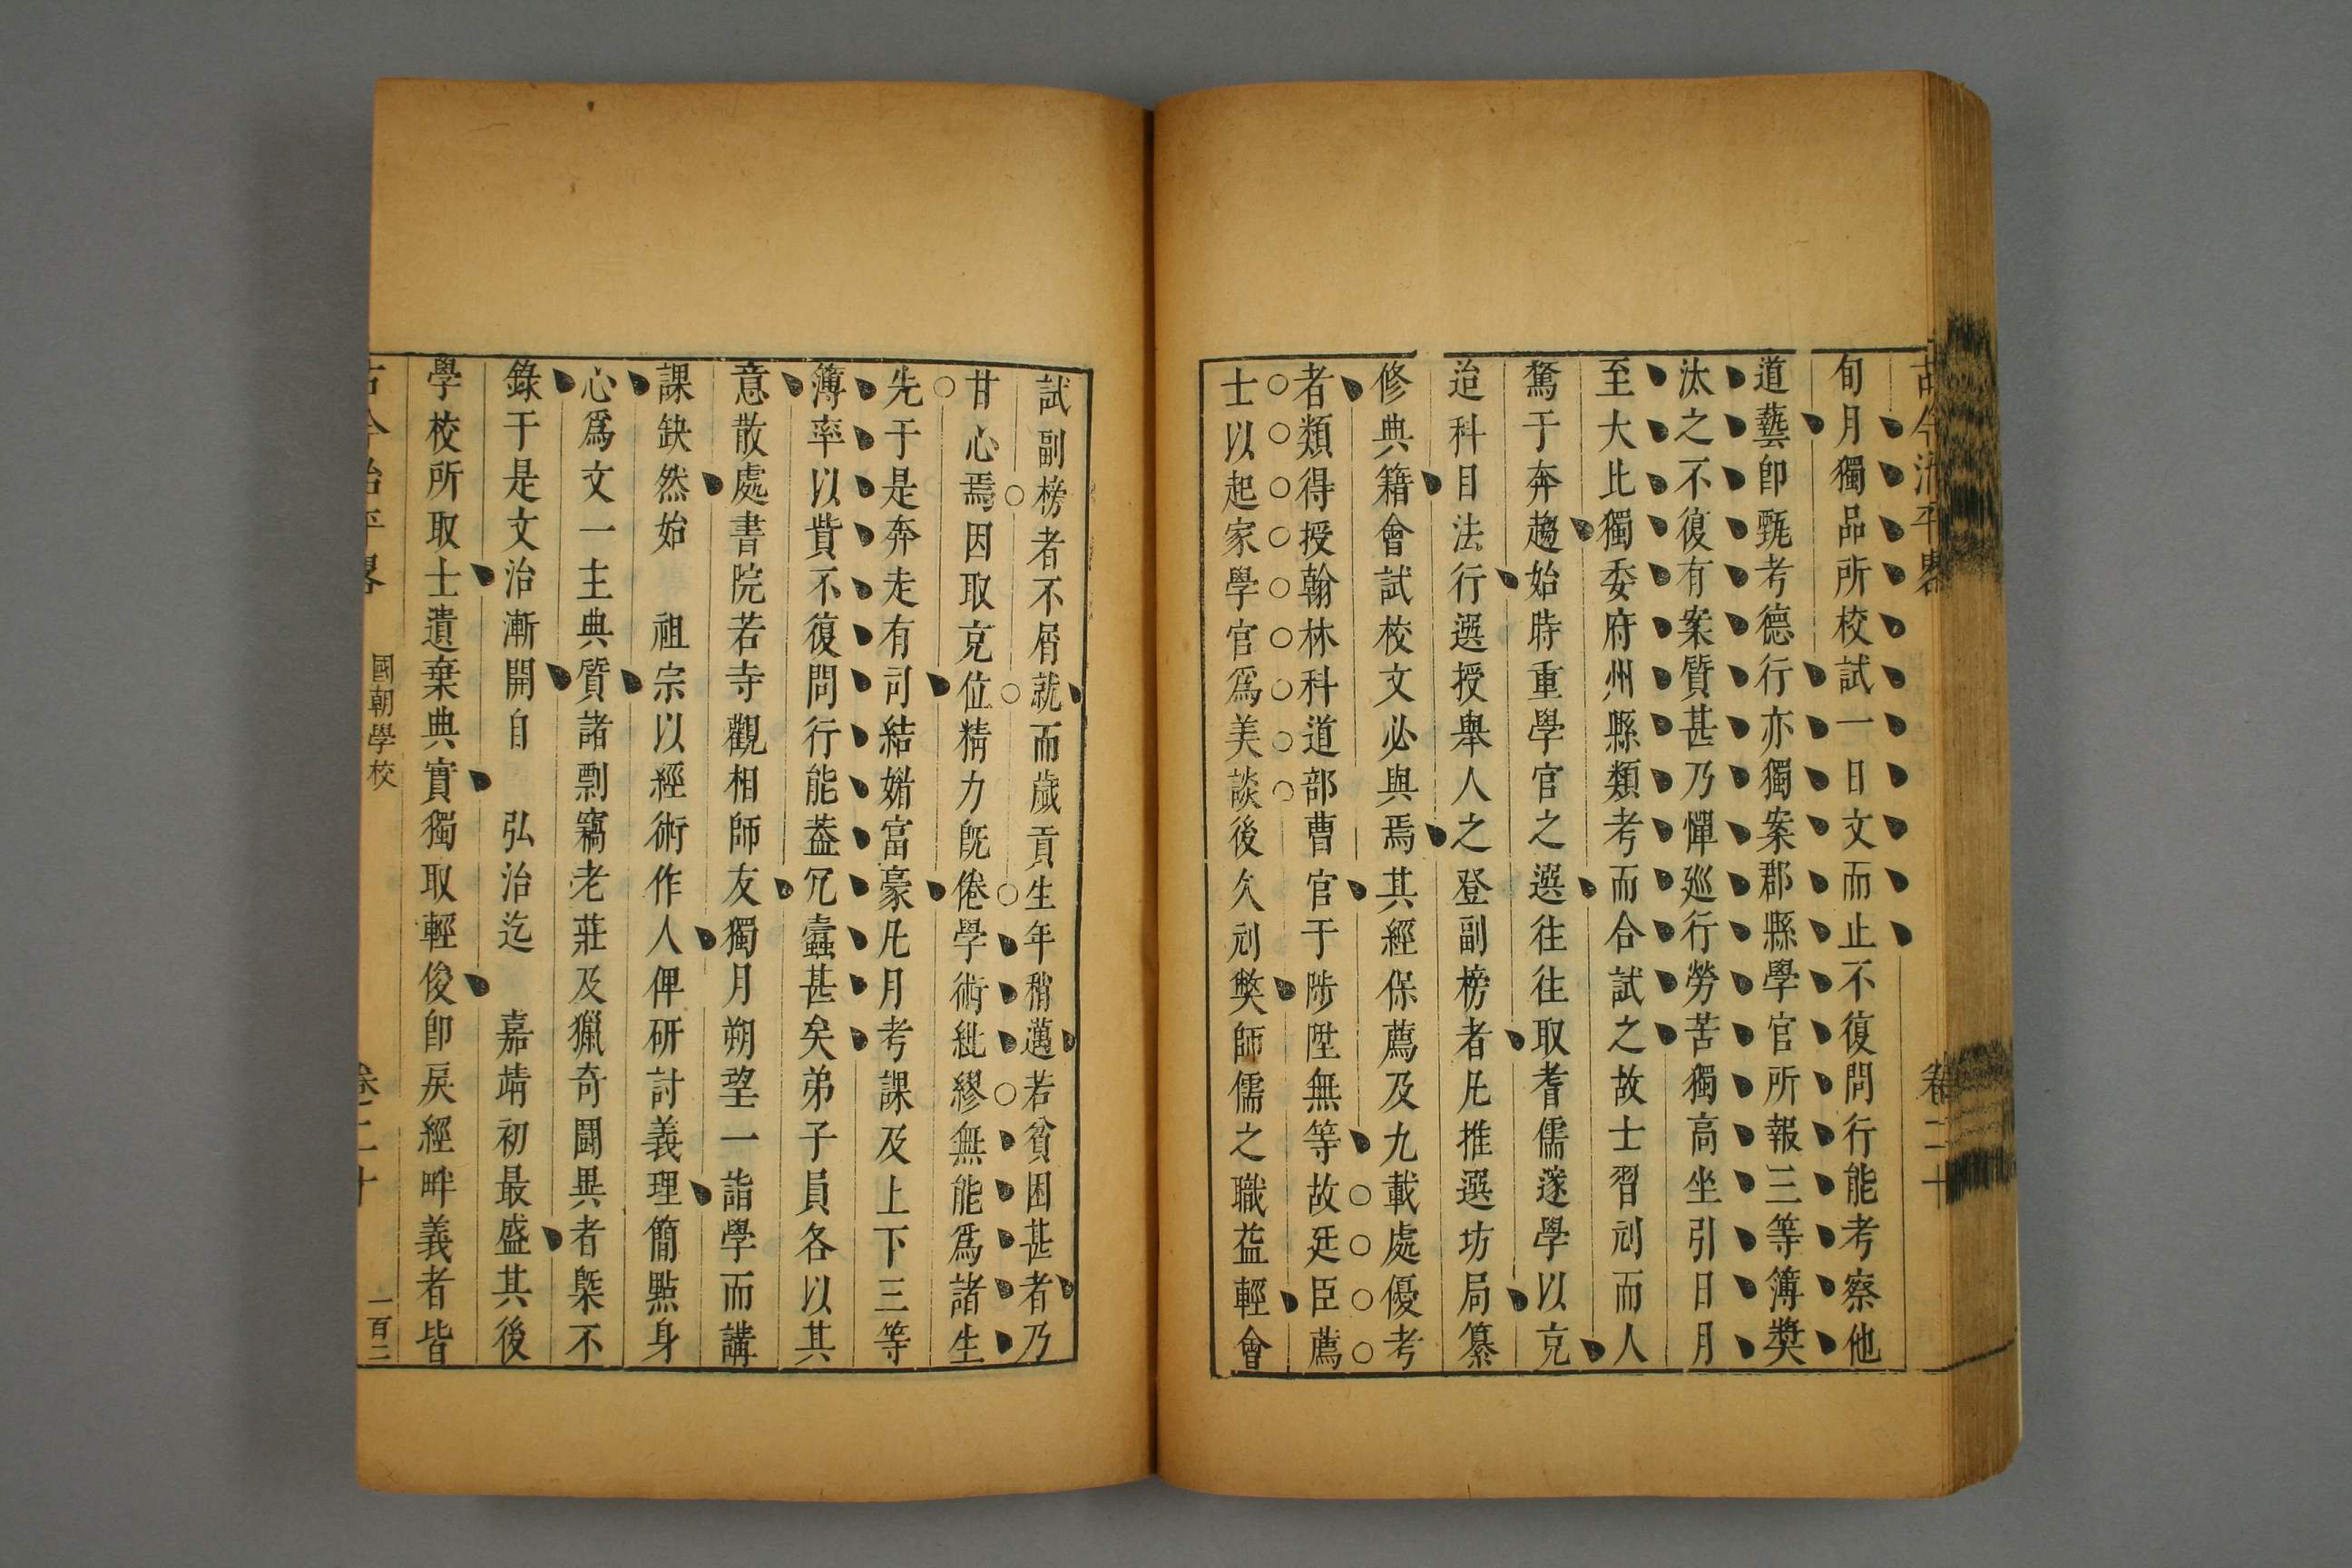 古今治平畧
卷二十
旬月獨品所校試一日文而止不復問行能考察他
道藝卽甄考德行亦獨案郡縣學官所報三等簿獎
汰之不復有案質甚乃憚廵行勞苦獨高坐引日月
至大比獨委府州縣類考而合試之故士習刓而人
騖于奔趨始時重學官之選往往取耆儒邃學以克
迨科目法行選授舉人之登副榜者凡推選坊局纂
修典籍會試校文必與焉其經保薦及九載處優考
者類得授翰林科道部曹官于陟陞無等故廷臣薦
士以起家學官爲美談後久刓獘師儒之職益輕會
試副榜者不屑就而歲貢生年稍邁若貧困甚者乃
甘心焉因取克位精力旣倦學術紕繆無能爲諸生
先于是奔走有司結婣富豪凡月考課及上下三等
簿率以貲不復問行能葢冗蠹甚矣弟子員各以其
意散處書院若寺觀相師友獨月朔望一詣學而講
課缺然始　祖宗以經術作人俾硏討義理簡㸃身
心爲文一主典質諸剽竊老莊及獵奇鬬異者槩不
錄于是文治漸開自　弘治迄　嘉靖初最盛其後
學校所取士遺棄典實獨取輕俊卽戾經畔義者皆
古今治平畧
國朝學校
卷二十
一百二